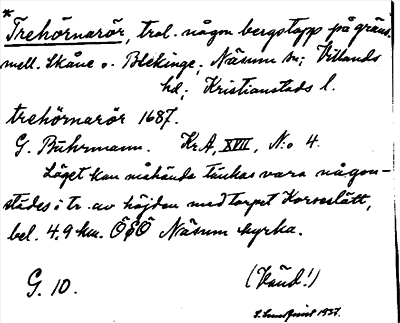 *
Trehörnarör, trol. någon bergstopp på gräns.
mell. Skåne o. Blekinge; Näsum sn; Villands
hd; Kristianstads l.
trehörnarör 1687.
G. Buhrmann. Kr.A, XVII, N:o 4.
Läget kan måhända tänkas vara någon-
städes i tr. av höjden med torpet Korseslätt,
bel. 4.9 km. ÖSÖ Näsum kyrka.
G. 10. (Vänd!)
1937.